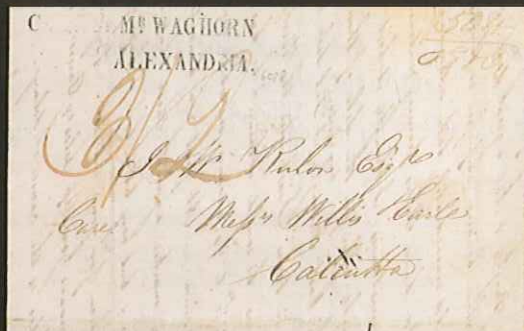 C Mr WAGHORN
ALEXANDRIA.
3/2
J W Rulon Esqre
Care Messrs Willis Earle
Calcutta